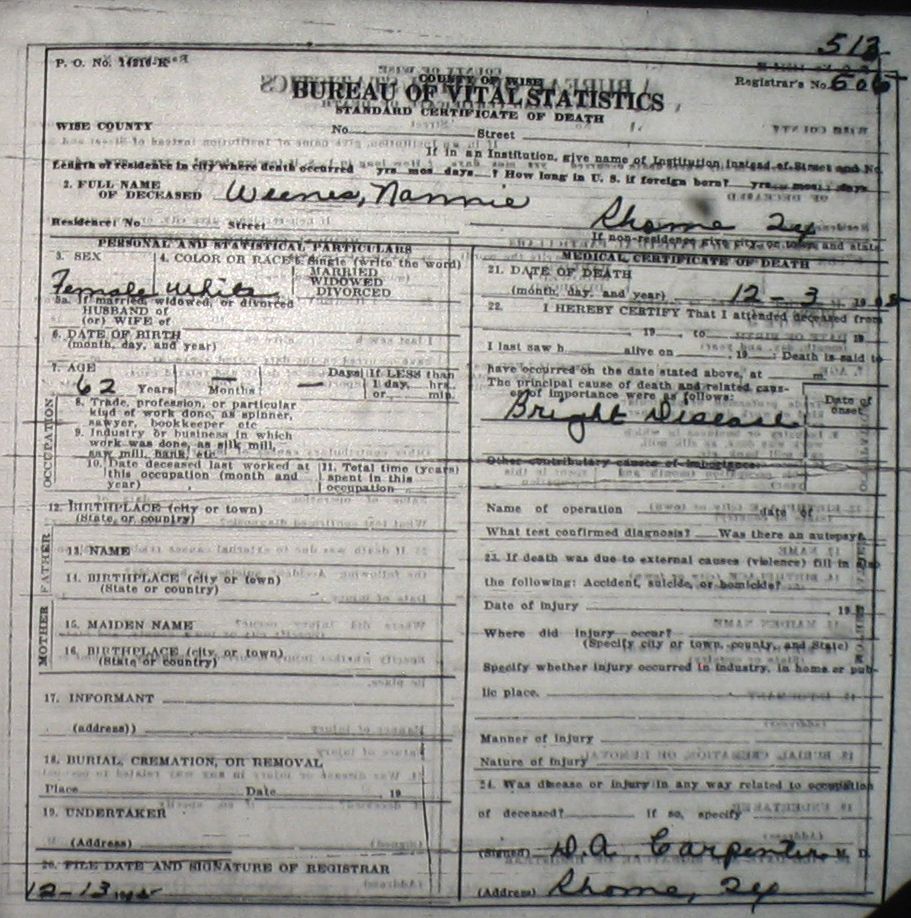 513
P. O. No. 14216-K
Registrar's No. 506
COUNTY OF WISE
BUREAU OF VITAL STATISTICS
STANDARD CERTIFICATE OF DEATH
WISE COUNTY No. Street
If in an Institution, give name of Institution instead of Street and No.
Length of residence in city where death occurred yrs. mos. days. ? How long in U. S. if foreign born? yrs. mos. days
2. FULL NAME
OF DECEASED Weenes, Nannie
Residence: No Street Rhome Tex
If non-residence give city or town and state.
PERSONAL AND STATISTICAL PARTICULARS
3. SEX 4. COLOR OR RACE 5. Single (write the word)
MARRIED
WIDOWED
DIVORCED
Female White
5a. If married, widowed, or divorced
HUSBAND of
(or) WIFE of
6. DATE OF BIRTH
(month, day, and year)
7. AGE Days If LESS than
62 Years — Months — 1 day, hrs.
or min.
OCCUPATION
8. Trade, profession, or particular
kind of work done, as spinner,
sawyer, bookkeeper etc
9. Industry or business in which
work was done, as silk mill,
saw mill, bank, etc
10. Date deceased last worked at
this occupation (month and
year)
11. Total time (years)
spent in this
occupation
12. BIRTHPLACE (city or town)
(State or country)
FATHER
13. NAME
14. BIRTHPLACE (city or town)
(State or country)
MOTHER
15. MAIDEN NAME
16. BIRTHPLACE (city or town)
(State or country)
17. INFORMANT
(address))
18. BURIAL, CREMATION, OR REMOVAL
Place Date 19
19. UNDERTAKER
(Address)
20. FILE DATE AND SIGNATURE OF REGISTRAR
12-13
MEDICAL CERTIFICATE OF DEATH
21. DATE OF DEATH
(month, day, and year) 12-3 19
22. I HEREBY CERTIFY That I attended deceased from
, 19 to 19
I last saw h alive on 19 ; Death is said to
have occurred on the date stated above, at m.
The principal cause of death and related caus-
es of importance were as follows:
Date of
onset
Bright Disease
Other contributary causes of importance:
Name of operation date of
What test confirmed diagnosis? Was there an autopsy
23. If death was due to external causes (violence) fill in also
the following: Accident, suicide, or homicide?
Date of injury , 19
Where did injury occur?
(Specify city or town, county, and State)
Specify whether injury occurred in industry, in home or pub-
lic place.
Manner of injury
Nature of injury
24. Was disease or injury in any way related to occupation
of deceased? if so, specify
(Signed) D.A. Carpenter M. D.
(Address) Rhome, Tex